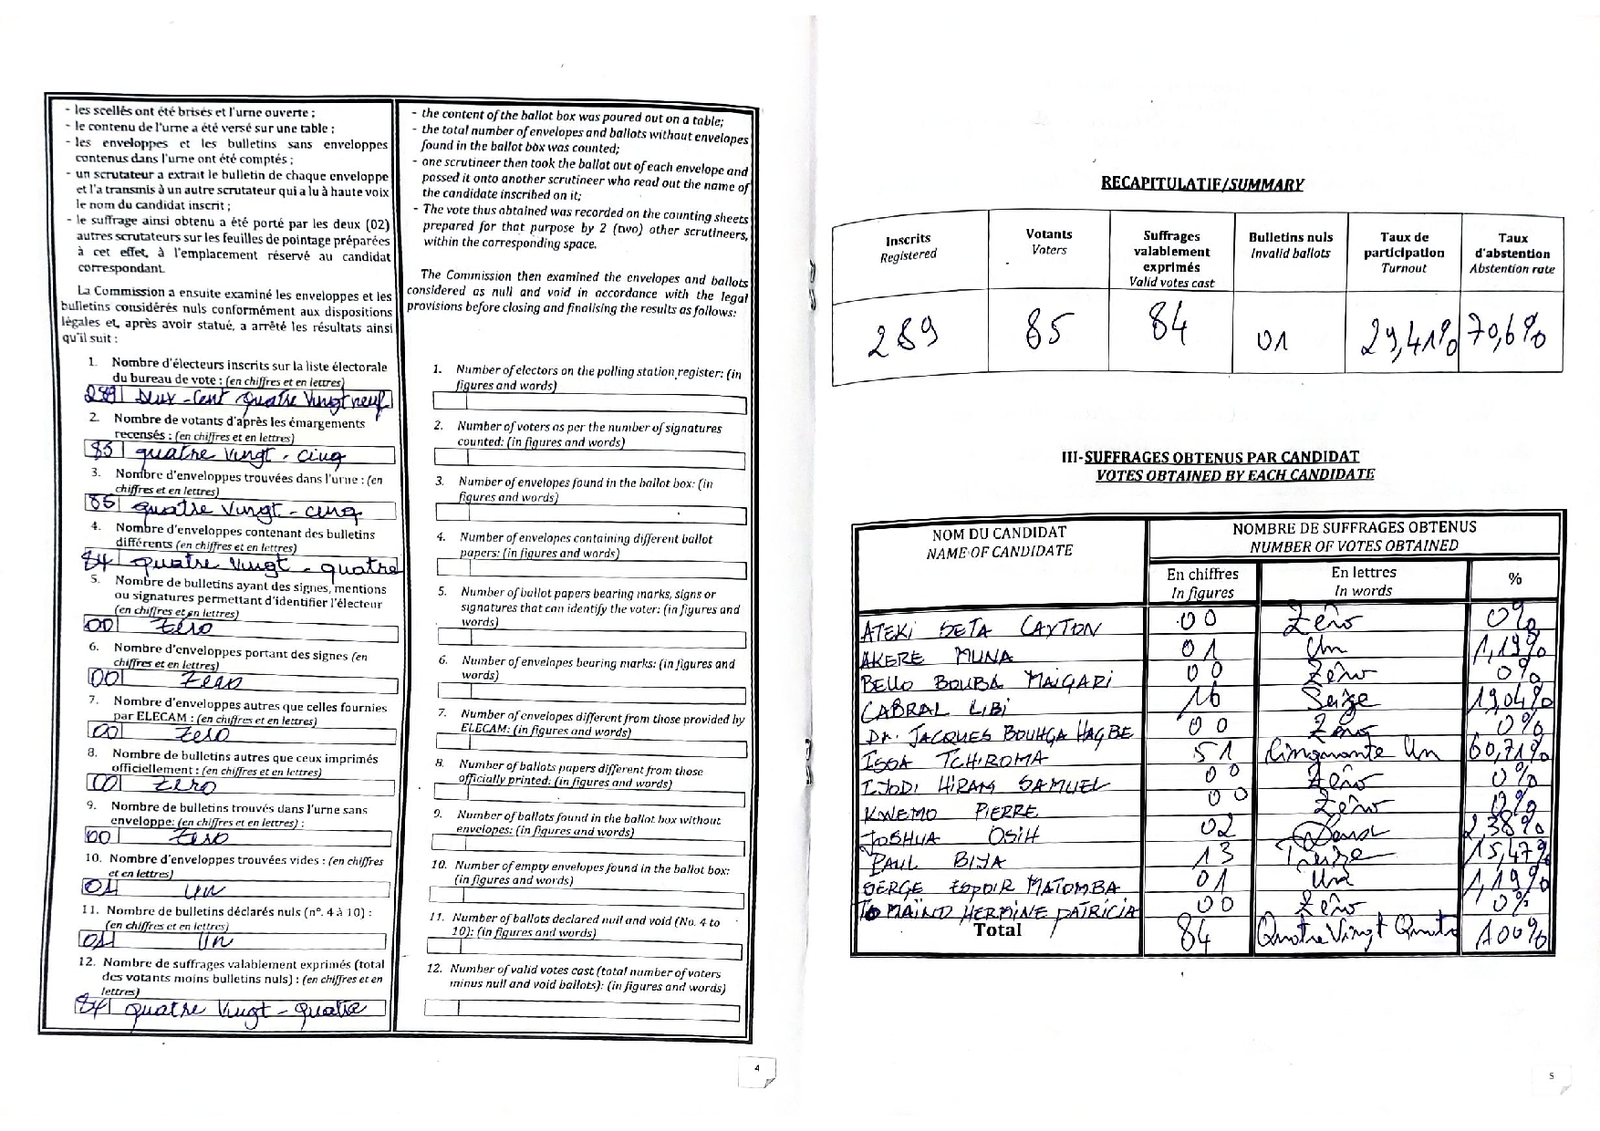 - les scellés ont été brisés et l'urne ouverte ;
- le contenu de l'urne a été versé sur une table ;
- les enveloppes et les bulletins sans enveloppes
contenus dans l'urne ont été comptés ;
- un scrutateur a extrait le bulletin de chaque enveloppe
et l'a transmis à un autre scrutateur qui a lu à haute voix
le nom du candidat inscrit ;
- le suffrage ainsi obtenu a été porté par les deux (02)
autres scrutateurs sur les feuilles de pointage préparées
à cet effet, à l'emplacement réservé au candidat
correspondant.
La Commission a ensuite examiné les enveloppes et les
bulletins considérés nuls conformément aux dispositions
légales et, après avoir statué, a arrêté les résultats ainsi
qu'il suit :
1. Nombre d'électeurs inscrits sur la liste électorale
du bureau de vote : (en chiffres et en lettres)
289 Deux-Cent quatre Vingt neuf
2. Nombre de votants d'après les émargements
recensés : (en chiffres et en lettres)
85 quatre Vingt - cinq
3. Nombre d'enveloppes trouvées dans l'urne : (en
chiffres et en lettres)
85 quatre Vingt - cinq
4. Nombre d'enveloppes contenant des bulletins
différents (en chiffres et en lettres)
84 quatre Vingt - quatre
5. Nombre de bulletins ayant des signes, mentions
ou signatures permettant d'identifier l'électeur
(en chiffres et en lettres)
00 Zéro
6. Nombre d'enveloppes portant des signes (en
chiffres et en lettres)
00 Zéro
7. Nombre d'enveloppes autres que celles fournies
par ELECAM : (en chiffres et en lettres)
00 Zéro
8. Nombre de bulletins autres que ceux imprimés
officiellement : (en chiffres et en lettres)
00 Zéro
9. Nombre de bulletins trouvés dans l'urne sans
enveloppe: (en chiffres et en lettres) :
00 Zéro
10. Nombre d'enveloppes trouvées vides : (en chiffres
et en lettres)
01 Un
11. Nombre de bulletins déclarés nuls (n°. 4 à 10) :
(en chiffres et en lettres)
01 Un
12. Nombre de suffrages valablement exprimés (total
des votants moins bulletins nuls) : (en chiffres et en
lettres)
84 quatre Vingt - quatre
- the content of the ballot box was poured out on a table;
- the total number of envelopes and ballots without envelopes
found in the ballot box was counted;
- one scrutineer then took the ballot out of each envelope and
passed it onto another scrutineer who read out the name of
the candidate inscribed on it;
- The vote thus obtained was recorded on the counting sheets
prepared for that purpose by 2 (two) other scrutineers,
within the corresponding space.
The Commission then examined the envelopes and ballots
considered as null and void in accordance with the legal
provisions before closing and finalising the results as follows:
1. Number of electors on the polling station register: (in
figures and words)
2. Number of voters as per the number of signatures
counted: (in figures and words)
3. Number of envelopes found in the ballot box: (in
figures and words)
4. Number of envelopes containing different ballot
papers: (in figures and words)
5. Number of ballot papers bearing marks, signs or
signatures that can identify the voter: (in figures and
words)
6. Number of envelopes bearing marks: (in figures and
words)
7. Number of envelopes different from those provided by
ELECAM: (in figures and words)
8. Number of ballots papers different from those
officially printed: (in figures and words)
9. Number of ballots found in the ballot box without
envelopes: (in figures and words)
10. Number of empty envelopes found in the ballot box:
(in figures and words)
11. Number of ballots declared null and void (No. 4 to
10): (in figures and words)
12. Number of valid votes cast (total number of voters
minus null and void ballots): (in figures and words)
4
RECAPITULATIF/SUMMARY
Inscrits Votants Suffrages valablement exprimés Bulletins nuls Taux de participation Taux d'abstention
Registered Voters Valid votes cast Invalid ballots Turnout Abstention rate
289 85 84 01 29,41% 70,6%
III-SUFFRAGES OBTENUS PAR CANDIDAT
VOTES OBTAINED BY EACH CANDIDATE
NOM DU CANDIDAT NOMBRE DE SUFFRAGES OBTENUS
NAME OF CANDIDATE NUMBER OF VOTES OBTAINED
En chiffres En lettres %
In figures In words
ATEKI SETA CAXTON 00 Zéro 0%
AKERE MUNA 01 Un 1,19%
BELLO BOUBA MAIGARI 00 Zéro 0%
CABRAL LIBI 16 Seize 19,04%
Dr. JACQUES BOUHGA HAGBE 00 Zéro 0%
ISSA TCHIROMA 51 Cinquante Un 60,71%
IJODI HIRAM SAMUEL 00 Zéro 0%
KWEMO PIERRE 00 Zéro 0%
JOSHUA OSIH 02 2,38%
PAUL BIYA 13 Treize 15,47%
SERGE ESPOIR MATOMBA 01 Un 1,19%
TOMAÏNO HERMINE PATRICIA 00 Zéro 0%
Total 84 Quatre Vingt Quatre 100%
5